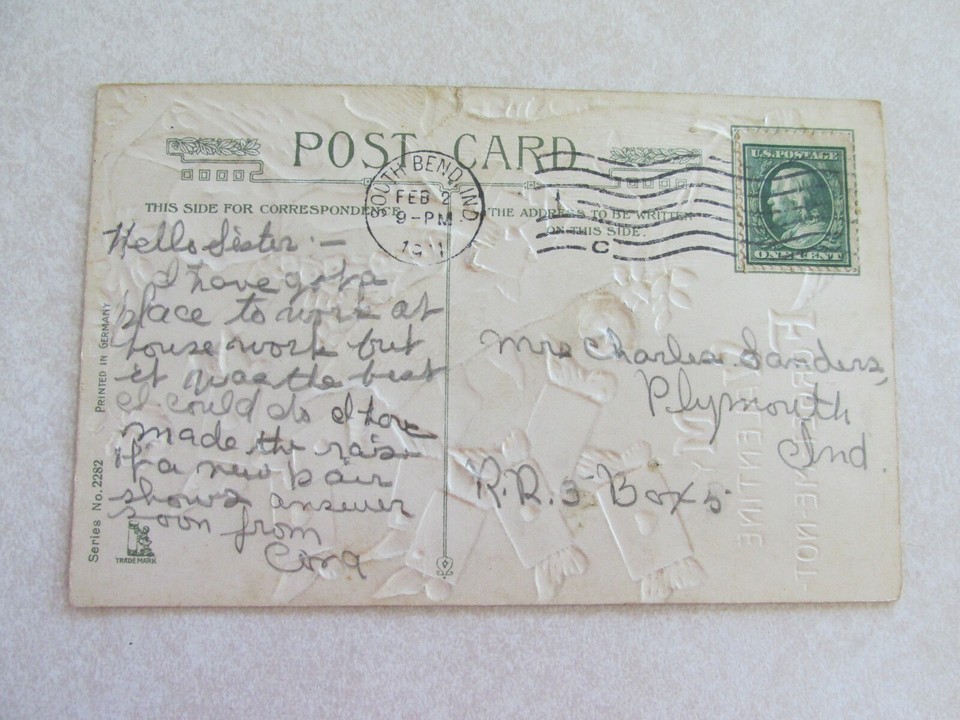 POST CARD
THIS SIDE FOR CORRESPONDENCE
THE ADDRESS TO BE WRITTEN
ON THIS SIDE.
SOUTH BEND, IND.
FEB 2
9-PM
1911
C
U.S. POSTAGE
ONE CENT
Hello Sister:—
I have got a
place to work at
house work but
it was the best
I could do I have
made the raise
of a new pair
shows answer
soon from
Cora
Mrs Charles Sanders,
Plymouth
Ind.
R.R. 3 Box 5
PRINTED IN GERMANY
Series No. 2282
TRADE MARK
FORGET-ME-NOT
MY
VALENTINE